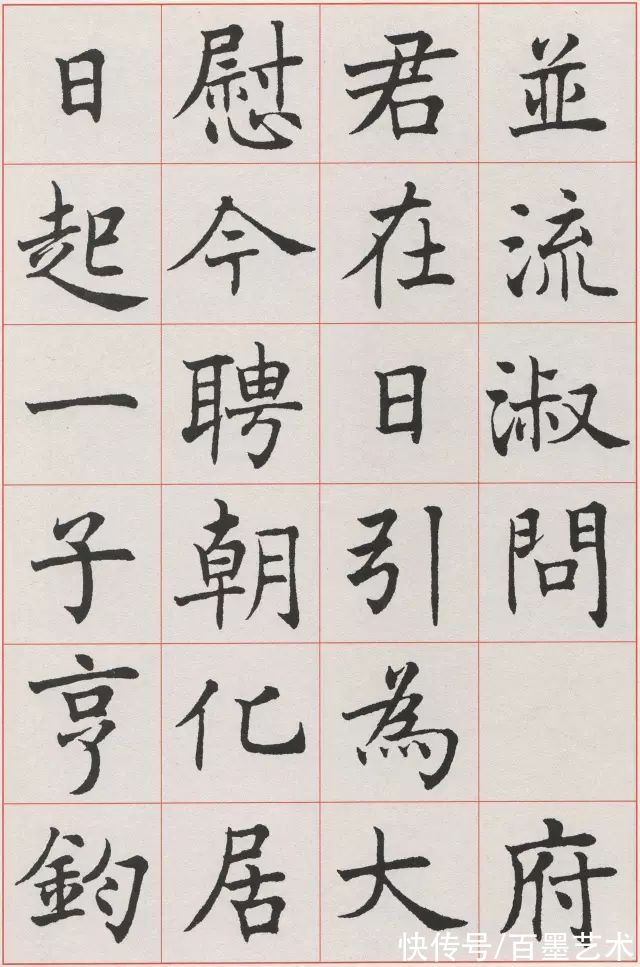 並流淑問 府
君在日引為大
慰今聘朝化居
日起一子亨鈞
快传号/百墨艺术